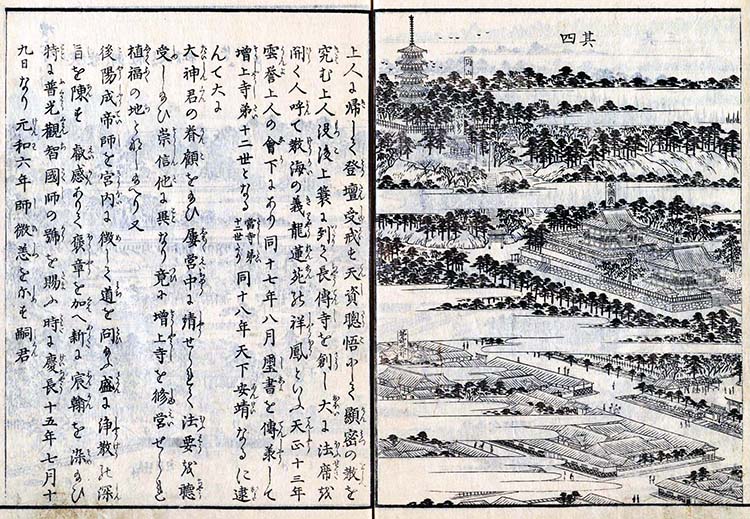 其四
上人に帰して登壇受戒す天資聰悟にして顕密の教を
究む上人没後上簑に到り長傳寺を創し大に法席を
開く人呼て教海の義龍蓮苑の祥鳳といふ天正十三年
雲誉上人の會下にあり同十七年八月璽書を傳承して
増上寺第十二世となる當寺第十二世なり同十八年天下安靖なるに逮
んて大に
大神君の眷顧を給ひ屡營中に請せられて法要を聴
受し給ひ崇信他に異なり竟に増上寺を修営せられ
植福の地となし給へり又
後陽成帝師を宮内に徴して道を問給ふ盛に浄教の深
旨を陳す叡感ありて褒章を加へ新に宸翰を染給ひ
特に普光觀智國師の號を賜ふ時に慶長十五年七月十
九日なり元和六年師微恙を示す嗣君